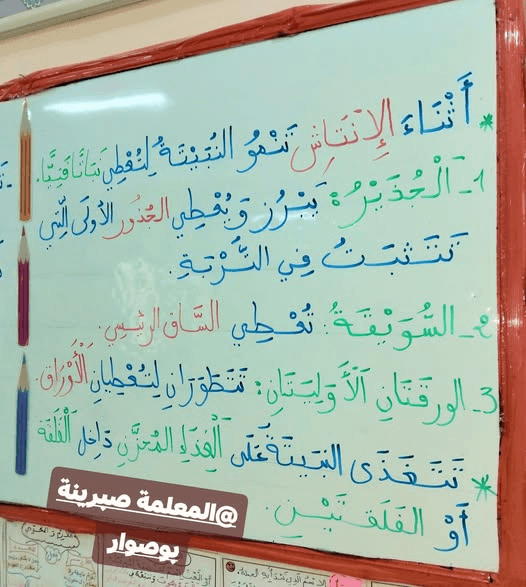 * أَثْنَاءَ الإِنْتَاشِ تَنْمُو النُبَيْتَةُ لِتُعْطِي نَبَاتًا فَتِيًّا.
1- اَلْجُذَيْرُ: يَبْرُزُ وَيُعْطِي الجُذُورَ الأُولَى الَّتِي
تَتَثَبَتُ فِي التُّرْبَةِ.
2- السُّوَيْقَةُ: تُعْطِي السَّاقَ الرَئِيسِي.
3- الوَرَقَتَانِ اَلْأَوَلِيَتَانِ: تَتَطَوَرَانِ لِتُعْطِيَانِ اَلْأَوْرَاقَ.
* تَتَغَذَى النُبَيْتَةُ عَلَى اَلْغِذَاءِ المُخَزَّنِ دَاخِلَ اَلْفَلْقَةِ
أَوْ الفَلْقَتَيْنِ.
@المعلمة صبرينة
بوصوار